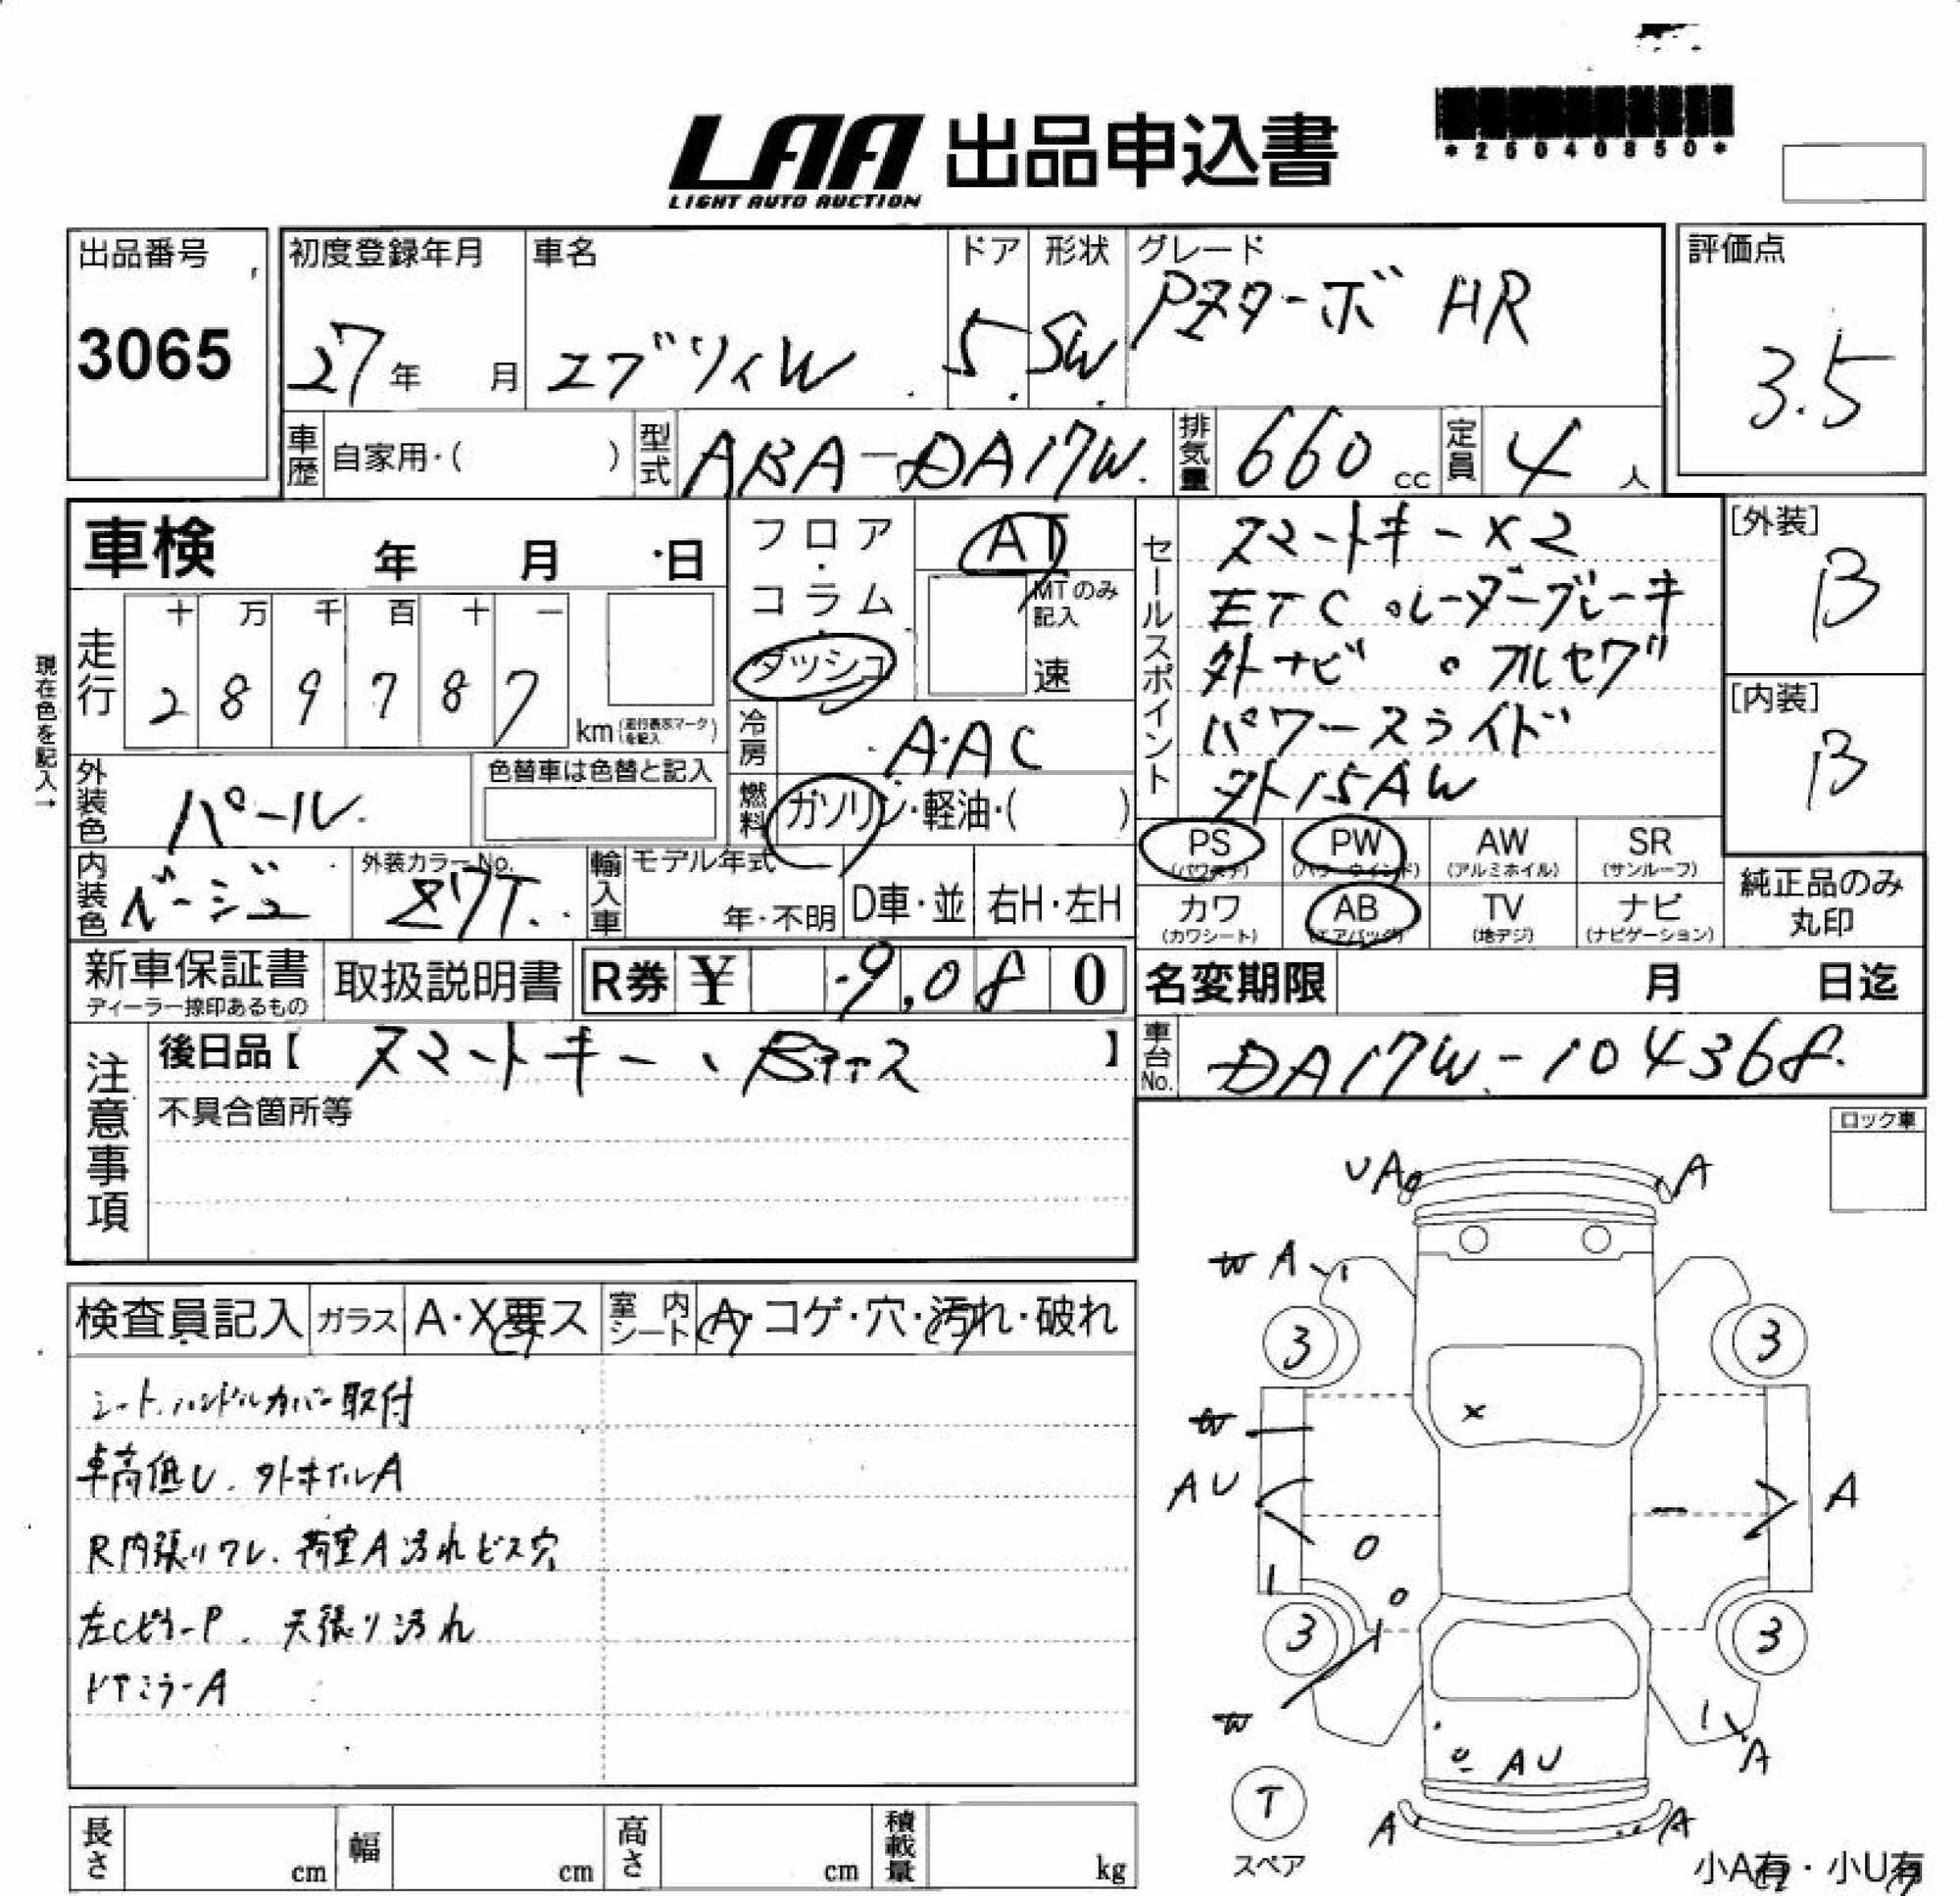 LAA 出品申込書
LIGHT AUTO AUCTION
*26040850*
出品番号
3065
初度登録年月
27年 月
車名
エブリィW
ドア
5
形状
SW
グレード
PZターボ HR
評価点
3.5
車歴 自家用・( )
型式 ABA-DA17W
排気量 660 cc
定員 4 人
車検 年 月 日
走行
十 万 千 百 十 一
2 8 9 7 8 7
km (走行表示マークを記入)
現在色を記入→
フロア・コラム・ダッシュ
AT
MTのみ記入
速
冷房 AAC
燃料 ガソリン・軽油・( )
セールスポイント
スマートキー×2
ETC 。レーダーブレーキ
外ナビ 。フルセグ
パワースライド
外15AW
[外装]
B
[内装]
B
外装色 パール
色替車は色替と記入
内装色 ベージュ
外装カラーNo.
Z7T
輸入車
モデル年式
年・不明
D車・並
右H・左H
PS (パワステ)
PW (パワーウインド)
AW (アルミホイル)
SR (サンルーフ)
カワ (カワシート)
AB (エアバッグ)
TV (地デジ)
ナビ (ナビゲーション)
純正品のみ
丸印
新車保証書
ディーラー捺印あるもの
取扱説明書
R券 ¥ 9,080
名変期限 月 日迄
車台No. DA17W-104368
注意事項
後日品【 スマートキー、 】
不具合箇所等
ロック車
検査員記入
ガラス A・X要ス
室内シート A・コゲ・穴・汚れ・破れ
シート、ハンドルカバー取付
車高低し、外ホイルA
R内張リワレ、荷室A汚れビス穴
左CピラーP、天張り汚れ
ドアミラーA
UA
A
W A
3
3
W
×
AU
A
3
3
W
A
AU
T
スペア
A
A
小A有・小U有
長さ cm
幅 cm
高さ cm
積載量 kg